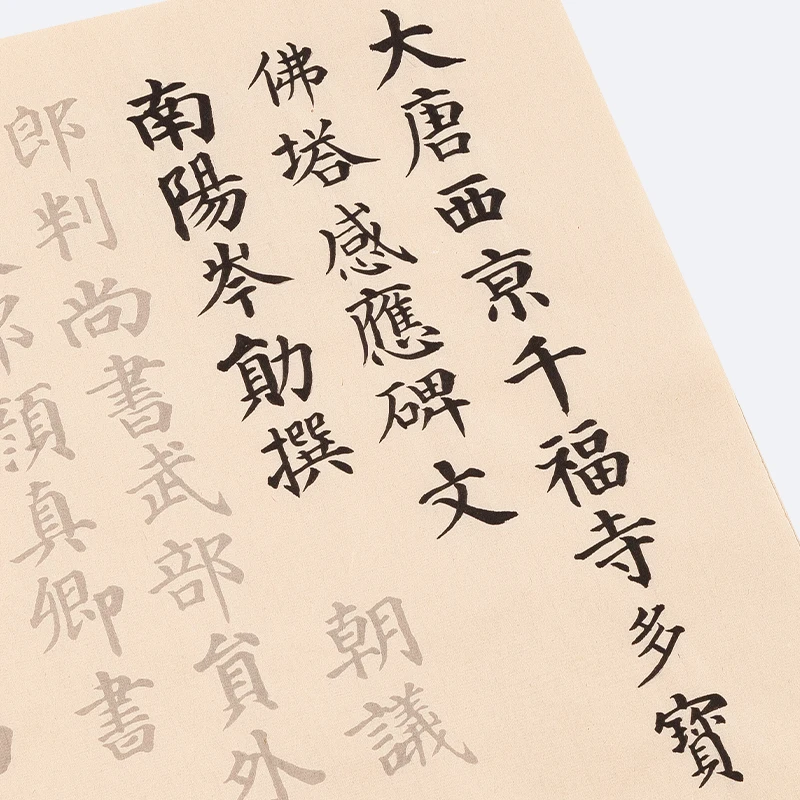 大唐西京千福寺多寶
佛塔感應碑文
南陽岑勛撰 朝議
郎判尚書武部貟外
顏真卿書